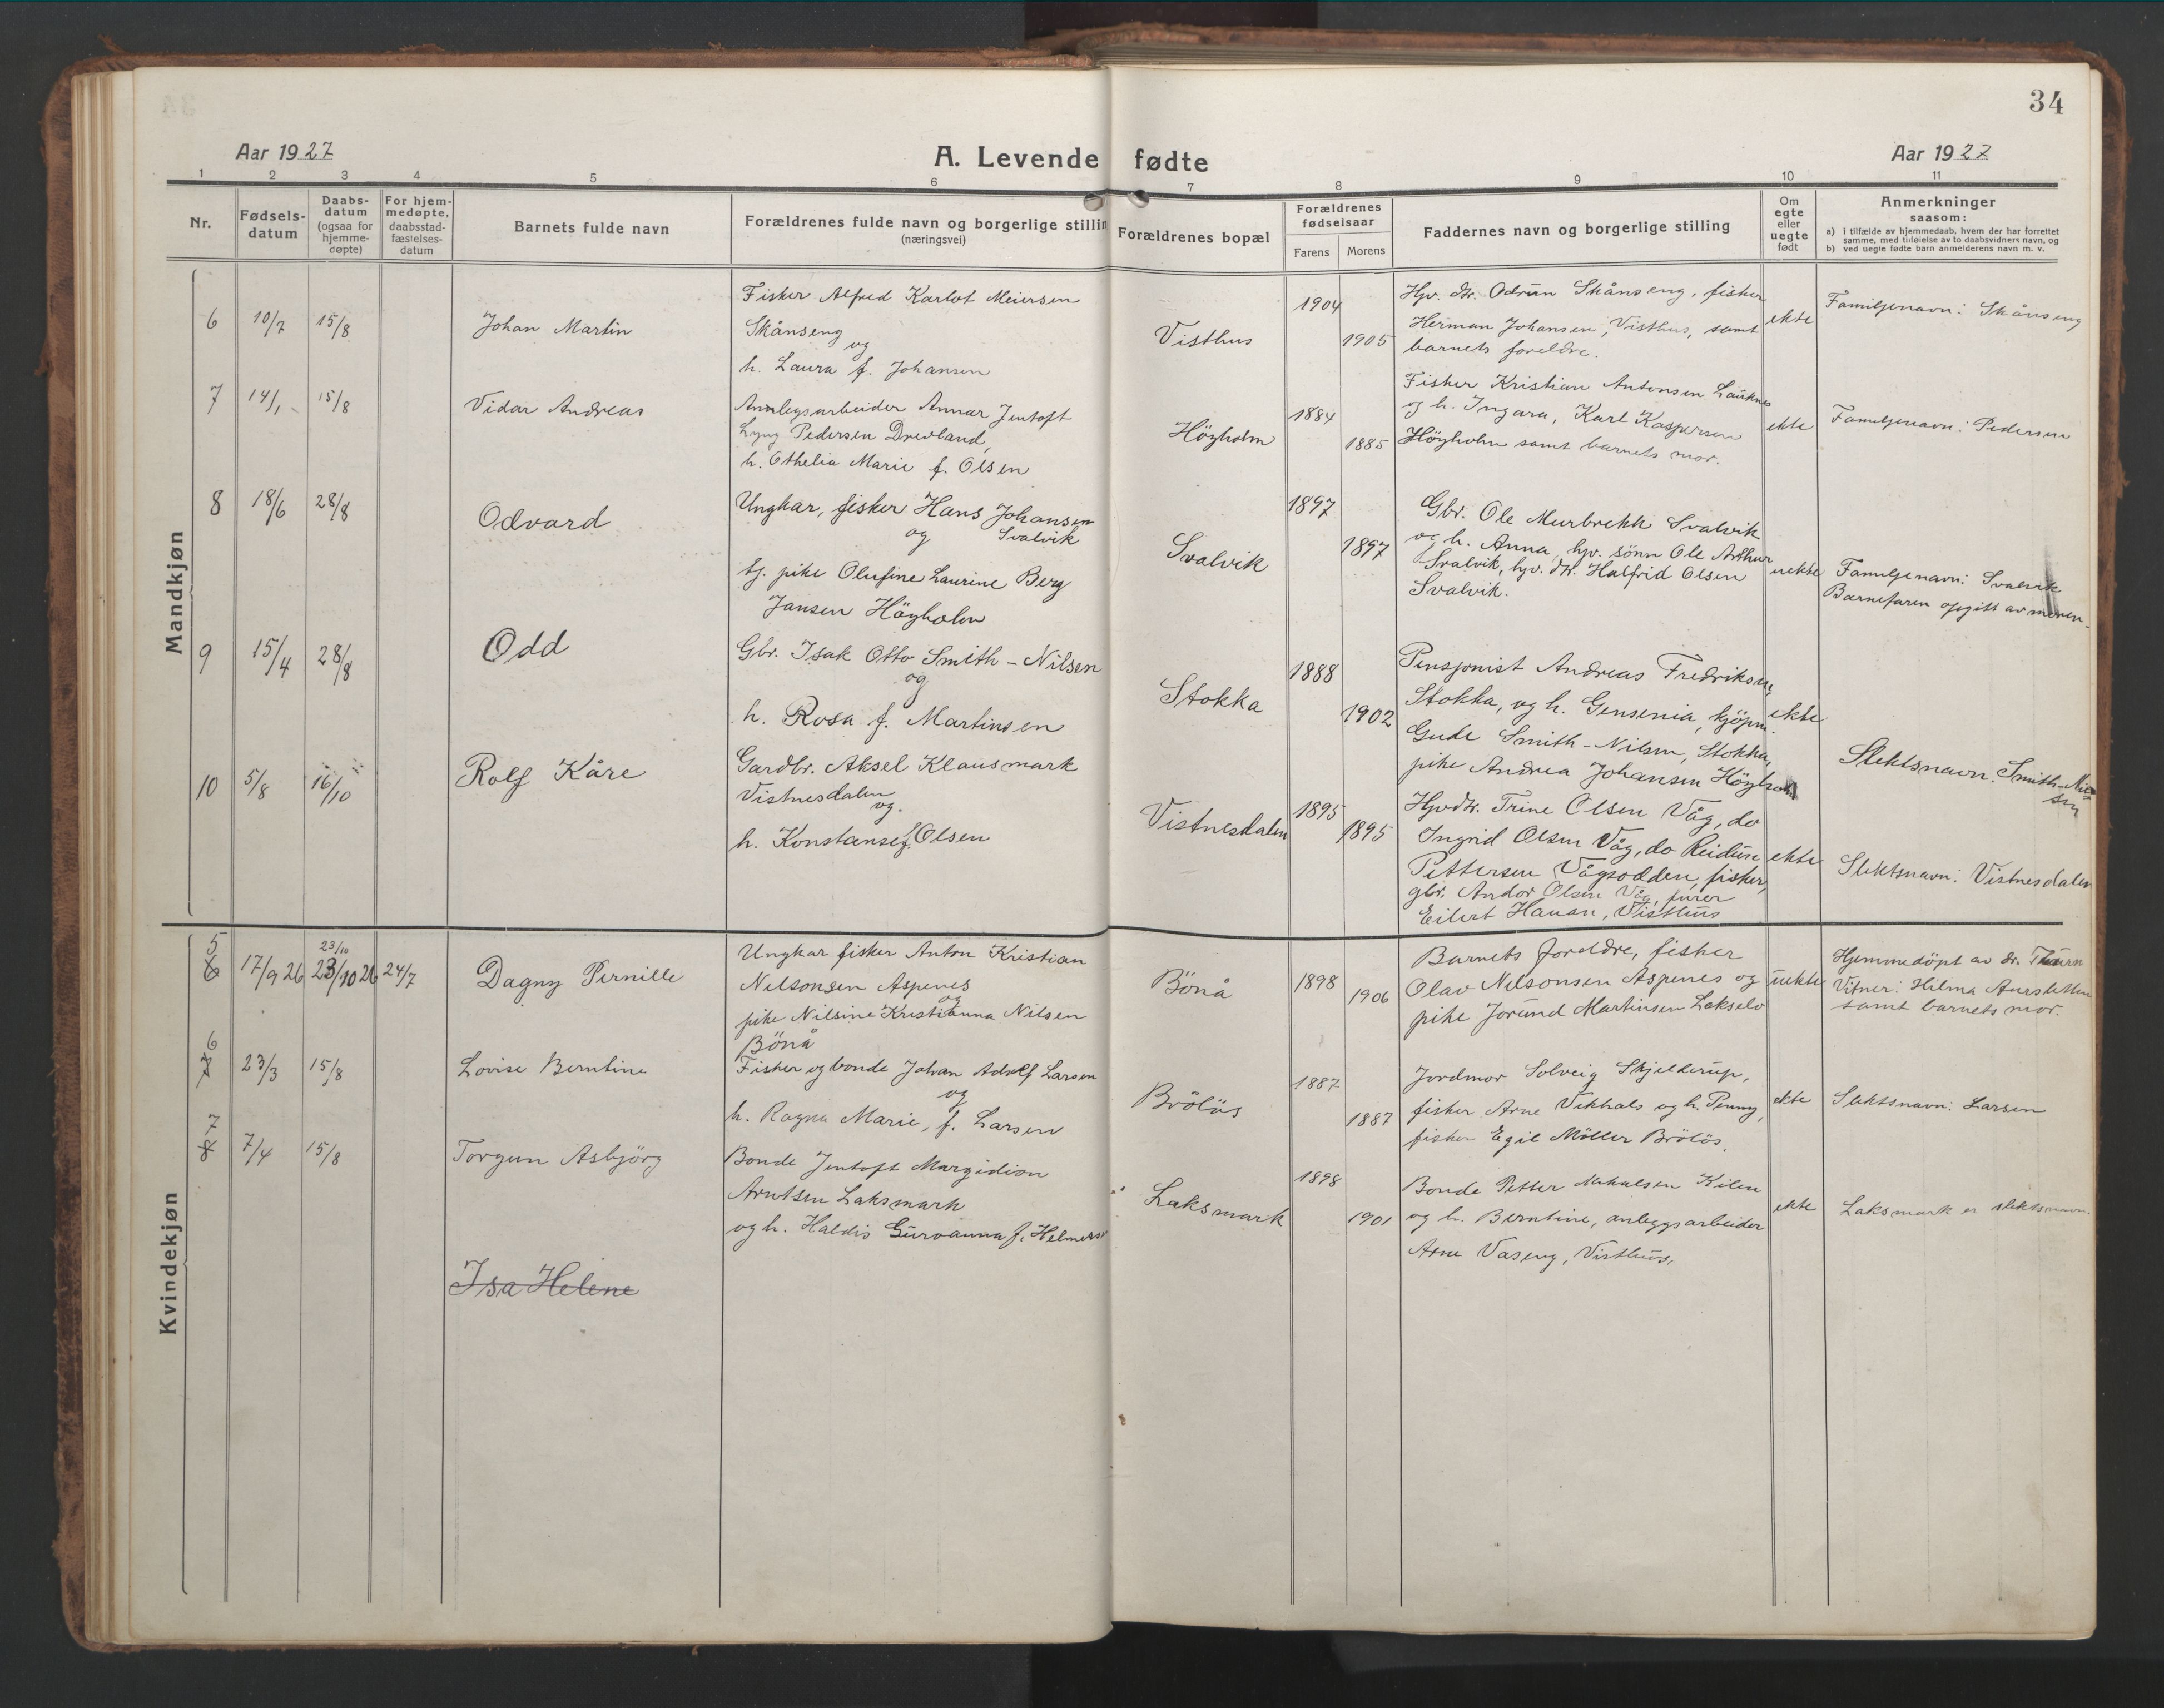 34
Aar 1927
A. Levende fødte
Aar 1927
1 2 3 4 5 6 7 8 9 10 11
Nr.
Fødsels-
datum
Daabs-
datum
(ogsaa for
hjemme-
døpte)
For hjem-
medøpte,
daabsstad-
fæstelses-
datum
Barnets fulde navn
Forældrenes fulde navn og borgerlige stillin
(næringsvei)
Forældrenes bopæl
Forældrenes
fødselsaar
Farens Morens
Faddernes navn og borgerlige stilling
Om
egte
eller
uegte
født
Anmerkninger
saasom:
a) i tilfælde av hjemmedaab, hvem der har forrettet
samme, med tilføielse av to daabsvidners navn, og
b) ved uegte fødte barn anmelderens navn m. v.
Mandkjøn
6 10/7 15/8 Johan Martin
Fisker Alfred Karlot Meiersen
Skånseng
og
h. Laura f. Johansen
Visthus
1904
1905
Hpv. dtr. Odrun Skånseng, fisker
Herman Johansen, Visthus, samt
barnets foreldre.
ekte
Familjenavn: Skånseng
7 14/1 15/8 Vidar Andreas
Anlegsarbeider Annar Jentoft
Lyng Pedersen Drevland,
h. Othelia Marie f. Olsen
Höyholm
1884
1885
Fisker Kristian Antonsen Lauknes
og h. Ingara, Karl Kaspersen
Höyholm samt barnets mor.
ekte
Familjenavn: Pedersen
8 18/6 28/8 Odvard
Ungkar, fisker Hans Johansen
og Svalvik
tj. pike Olufine Laurine Berg
Jansen Höyholm
Svalvik
1897
1897
Gbr. Ole Murbrekk Svalvik
og h. Anna, hpv. sönn Ole Arthur
Svalvik, hpv. dtr. Halfrid Olsen
Svalvik.
uekte
Familjenavn: Svalvik
Barnefaren opgitt av moren.
9 15/4 28/8 Odd
Gbr. Isak Otto Smith-Nilsen
og
h. Rosa f. Martinsen
Stokka
1888
1902
Pensjonist Andreas Fredriksen,
Stokka, og h. Gensenia, kjöpm.
Gude Smith-Nilsen, Stokka,
pike Andrea Johansen Höyholm
ekte
Slektsnavn: Smith-Nil-
sen
10 5/8 16/10 Rolf Kåre
Gardbr. Aksel Klausmark
Vistnesdalen
og.
h. Konstanse f. Olsen
Vistnesdalen
1895
1895
Hpvdtr. Trine Olsen Våg, do
Ingrid Olsen Våg, do Reidun
Pettersen Vågsodden, fisker,
gbr. Andor Olsen Våg, furer
Eilert Hauan, Visthus
ekte
Slektsnavn: Vistnesdalen
Kvindekjøn
5
6 17/9 26 23/10 23/10 26 24/7 Dagny Pernille
Ungkar fisker Anton Kristian
Nelsonsen Aspenes
og
pike Nilsine Kristianna Nilsen
Bönå
Bönå
1898
1906
Barnets foreldre, fisker
Olav Nelsonsen Aspenes og
pike Jorund Martinsen Lakselv
uekte
Hjemmedöpt av dr.
Vitner: Hilma
samt barnets mor.
6
7 23/3 15/8 Lovise Berntine
Fisker og bonde Johan Adolf Larsen
og
h. Ragna Marie, f. Larsen
Brölös
1887
1887
Jordmor Solveig Skjelderup,
fisker Arne Vikhals og h. Penny,
fisker Egil Möller Brölös.
ekte
Slektsnavn: Larsen
7
8 7/4 15/8 Torgun Asbjörg
Bonde Jentoft Margidion
Arntsen Laksmark
og h. Haldis Guroanna f. Helmers
Laksmark
1898
1901
Bonde Petter Mikalsen Kilen
og h. Berntine, anleggsarbeider
Arne Vaseng, Visthus.
ekte
Laksmark er slektsnavn.
Isa Helene